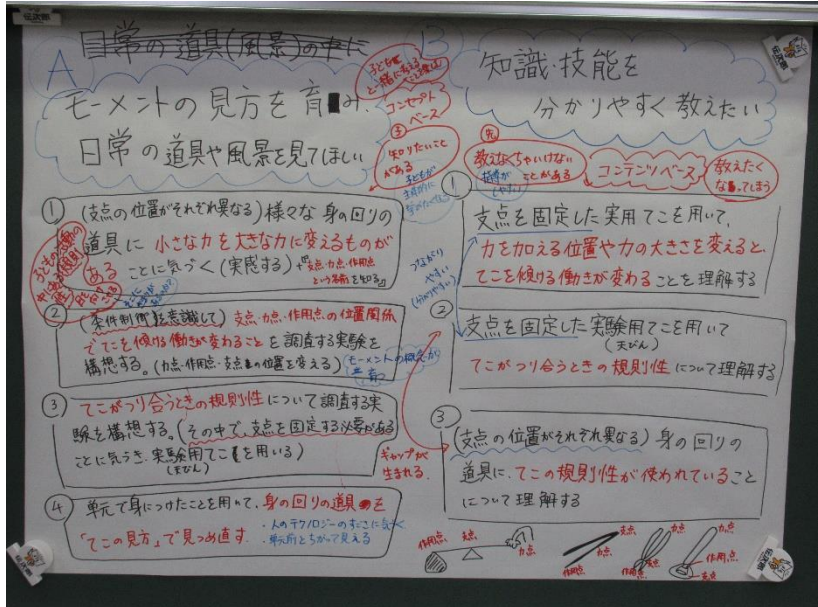 日常の道具(風景)の中に
A
モーメントの見方を育み、
日常の道具や風景を見てほしい
子どもと
一緒に考える
コンセプト
ベース
子
知りたいこと
がある
子どもが
主体的に
① (支点の位置がそれぞれ異なる)様々な身の回りの
道具に小さな力を大きな力に変えるものが
あることに気づく(実感する)+『支点・力点・作用点
という名前を知る』
② (条件制御を意識して)支点・力点・作用点の位置関係
でてこを傾ける働きが変わることを調査する実験を
構想する。(力点・作用点・支点の位置を変える)
モーメントの概念が
育つ
③ てこがつり合うときの規則性について調査する実
験を構想する。(その中で、支点を固定する必要がある
ことに気づき、実験用てこを用いる)
(天びん)
④ 単元で身につけたことを用いて、身の回りの道具を
「てこの見方」で見つめ直す
・人のテクノロジーのすごさに気づく
・単元前とちがって見える
B
知識・技能を
分かりやすく教えたい
先
教えなくちゃいけない
ことがある
指導が
しやすい
コンテンツベース
教えたく
なってしまう
つながり
やすい
(分かりやすい)
① 支点を固定した実用てこを用いて、
力を加える位置や力の大きさを変えると、
てこを傾ける働きが変わることを理解する
② 支点を固定した実験用てこを用いて
(天びん)
てこがつり合うときの規則性について理解する
ギャップが
生まれる
③ (支点の位置がそれぞれ異なる)身の回りの
道具に、てこの規則性が使われていること
について理解する
作用点 支点 力点
支点 力点 作用点
力点 支点 作用点
力点 作用点 支点